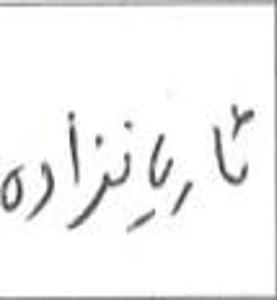 ثاریانزاده